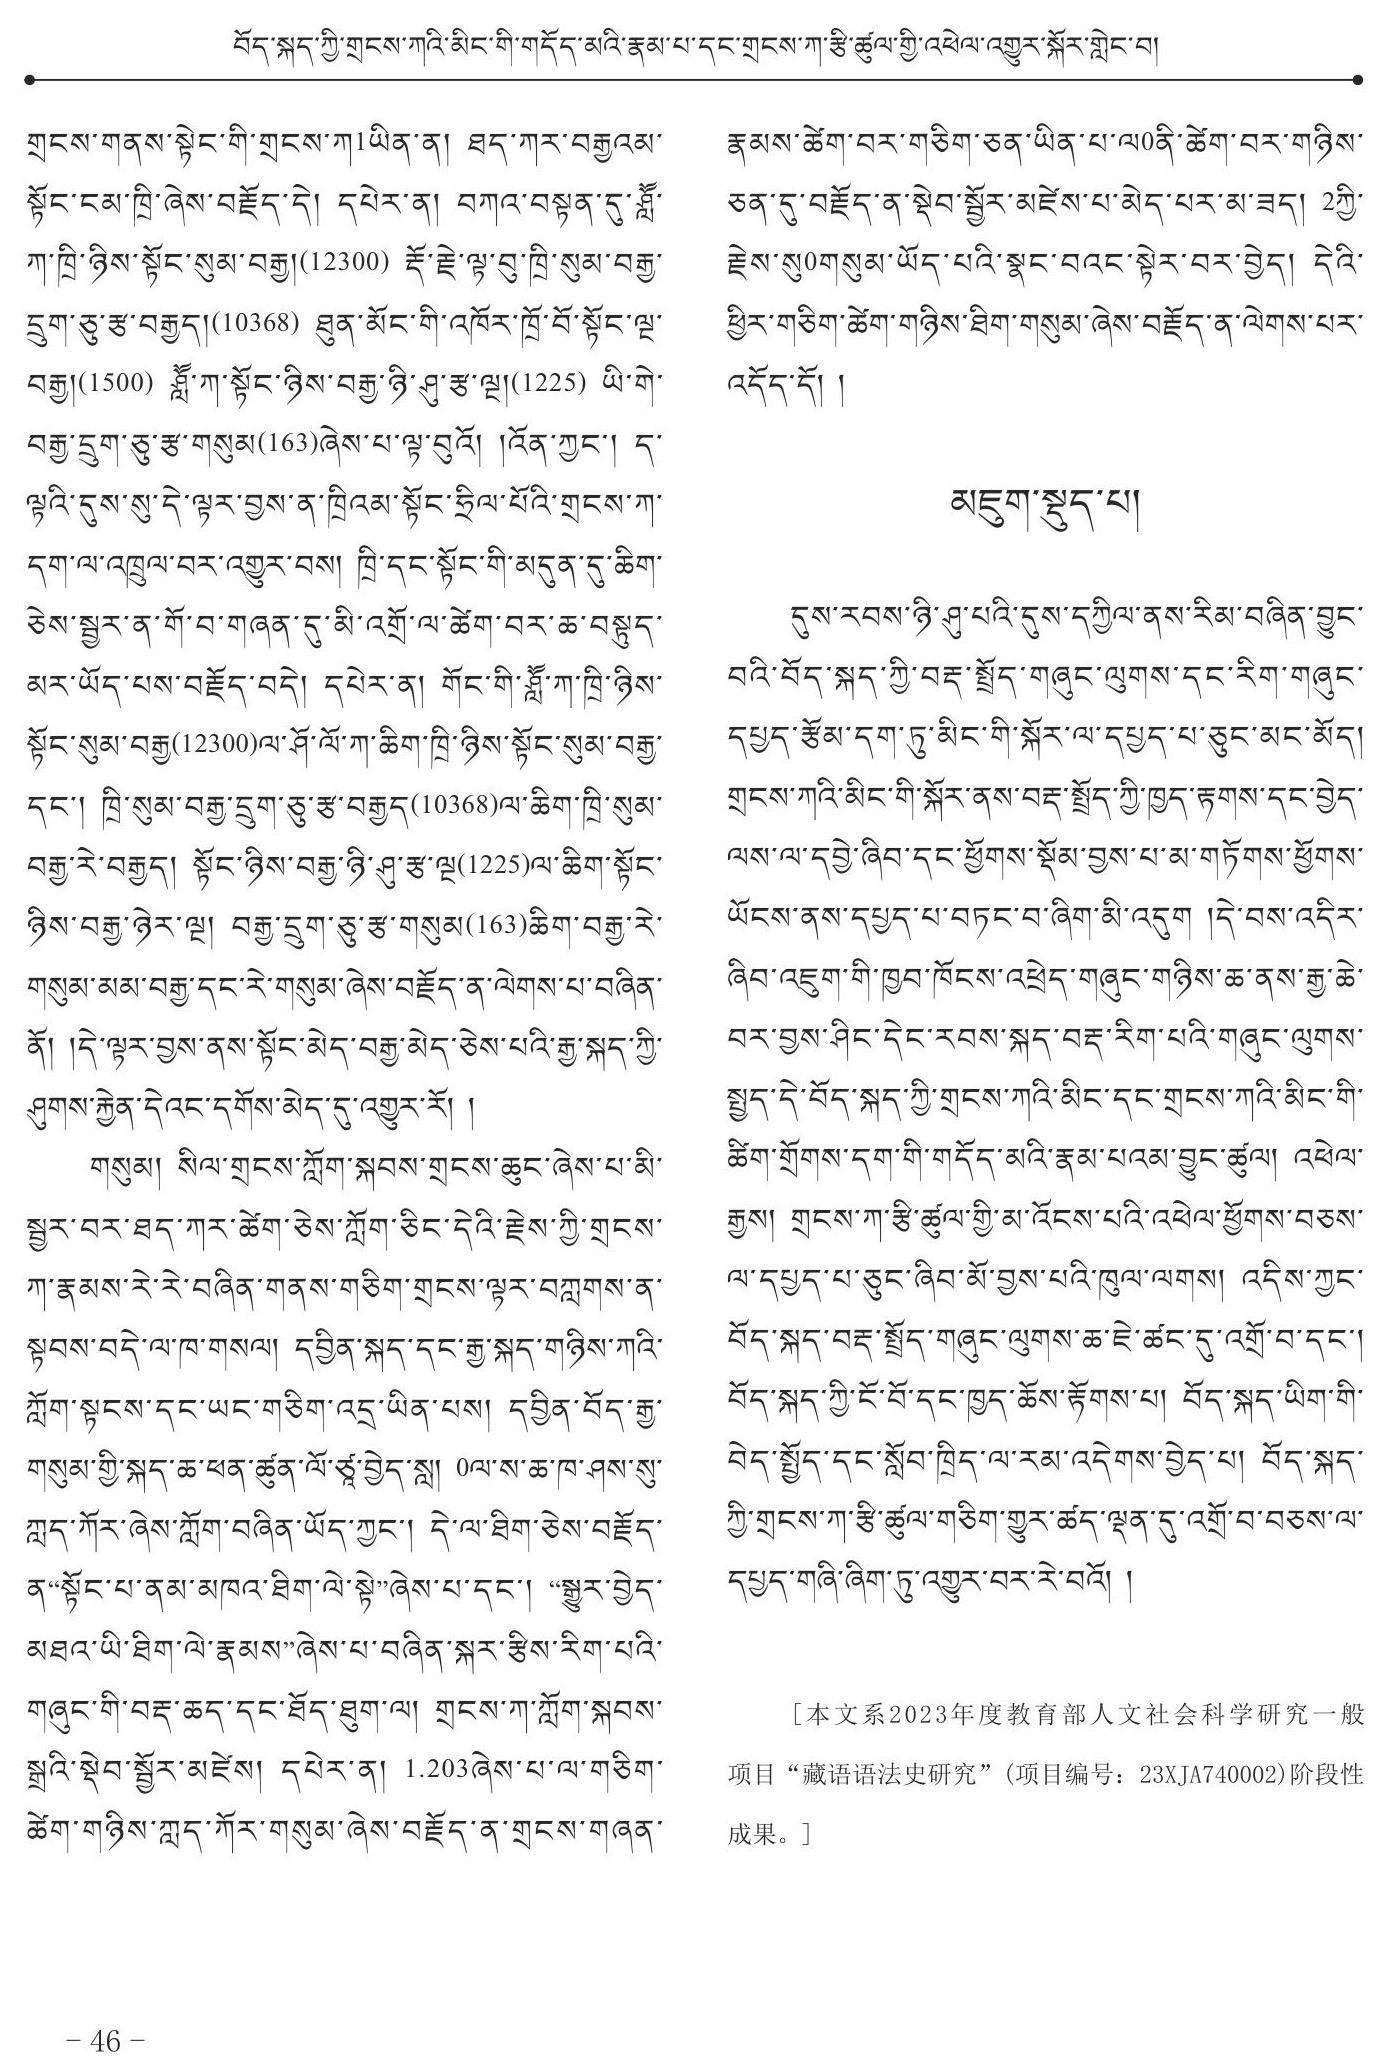 བོད་སྐད་ཀྱི་གྲངས་ཀའི་མིང་གི་གདོད་མའི་རྣམ་པ་དང་གྲངས་ཀ་རྩི་ཚུལ་གྱི་འཕེལ་འགྱུར་སྐོར་གླེང་བ།
གྲངས་གནས་སྟེང་གི་གྲངས་ཀ1ཡིན་ན། ཐད་ཀར་བརྒྱའམ་
སྟོང་ངམ་ཁྲི་ཞེས་བརྗོད་དེ། དཔེར་ན། བཀའ་བསྟན་དུ་ཤློ་
ཀ་ཁྲི་ཉིས་སྟོང་སུམ་བརྒྱ།(12300) རྡོ་རྗེ་ལྟ་བུ་ཁྲི་སུམ་བརྒྱ་
དྲུག་ཅུ་རྩ་བརྒྱད།(10368) ཐུན་མོང་གི་འཁོར་ཁྲོ་བོ་སྟོང་ལྔ་
བརྒྱ།(1500) ཤློ་ཀ་སྟོང་ཉིས་བརྒྱ་ཉི་ཤུ་རྩ་ལྔ།(1225) ཡི་གེ་
བརྒྱ་དྲུག་ཅུ་རྩ་གསུམ(163)ཞེས་པ་ལྟ་བུའོ། །འོན་ཀྱང་། ད་
ལྟའི་དུས་སུ་དེ་ལྟར་བྱས་ན་ཁྲིའམ་སྟོང་ཧྲིལ་པོའི་གྲངས་ཀ་
དག་ལ་འཁྲུལ་བར་འགྱུར་བས། ཁྲི་དང་སྟོང་གི་མདུན་དུ་ཆིག་
ཅེས་སྦྱར་ན་གོ་བ་གཞན་དུ་མི་འགྲོ་ལ་ཚེག་བར་ཆ་བསྟུད་
མར་ཡོད་པས་བརྗོད་བདེ། དཔེར་ན། གོང་གི་ཤློ་ཀ་ཁྲི་ཉིས་
སྟོང་སུམ་བརྒྱ(12300)ལ་ཤོ་ལོ་ཀ་ཆིག་ཁྲི་ཉིས་སྟོང་སུམ་བརྒྱ་
དང་། ཁྲི་སུམ་བརྒྱ་དྲུག་ཅུ་རྩ་བརྒྱད(10368)ལ་ཆིག་ཁྲི་སུམ་
བརྒྱ་རེ་བརྒྱད། སྟོང་ཉིས་བརྒྱ་ཉི་ཤུ་རྩ་ལྔ(1225)ལ་ཆིག་སྟོང་
ཉིས་བརྒྱ་ཉེར་ལྔ། བརྒྱ་དྲུག་ཅུ་རྩ་གསུམ(163)ཆིག་བརྒྱ་རེ་
གསུམ་མམ་བརྒྱ་དང་རེ་གསུམ་ཞེས་བརྗོད་ན་ལེགས་པ་བཞིན་
ནོ། །དེ་ལྟར་བྱས་ནས་སྟོང་མེད་བརྒྱ་མེད་ཅེས་པའི་རྒྱ་སྐད་ཀྱི་
ཤུགས་རྐྱེན་དེའང་དགོས་མེད་དུ་འགྱུར་རོ། །
གསུམ། སིལ་གྲངས་ཀློག་སྐབས་གྲངས་ཆུང་ཞེས་པ་མི་
སྦྱར་བར་ཐད་ཀར་ཚེག་ཅེས་ཀློག་ཅིང་དེའི་རྗེས་ཀྱི་གྲངས་
ཀ་རྣམས་རེ་རེ་བཞིན་གནས་གཅིག་གྲངས་ལྟར་བཀླགས་ན་
སྟབས་བདེ་ལ་ཁ་གསལ། དབྱིན་སྐད་དང་རྒྱ་སྐད་གཉིས་ཀའི་
ཀློག་སྟངས་དང་ཡང་གཅིག་འདྲ་ཡིན་པས། དབྱིན་བོད་རྒྱ་
གསུམ་གྱི་སྐད་ཆ་ཕན་ཚུན་ལོ་ཙཱ་བྱེད་སླ། 0ལ་ས་ཆ་ཁ་ཤས་སུ་
ཀླད་ཀོར་ཞེས་ཀློག་བཞིན་ཡོད་ཀྱང་། དེ་ལ་ཐིག་ཅེས་བརྗོད་
ན“སྟོང་པ་ནམ་མཁའ་ཐིག་ལེ་སྟེ”ཞེས་པ་དང་། “སྒྱུར་བྱེད་
མཐའ་ཡི་ཐིག་ལེ་རྣམས”ཞེས་པ་བཞིན་སྐར་རྩིས་རིག་པའི་
གཞུང་གི་བརྡ་ཆད་དང་ཐོད་ཐུག་ལ། གྲངས་ཀ་ཀློག་སྐབས་
སྒྲའི་སྡེབ་སྦྱོར་མཛེས། དཔེར་ན། 1.203ཞེས་པ་ལ་གཅིག་
ཚེག་གཉིས་ཀླད་ཀོར་གསུམ་ཞེས་བརྗོད་ན་གྲངས་གཞན་
རྣམས་ཚེག་བར་གཅིག་ཅན་ཡིན་པ་ལ0ནི་ཚེག་བར་གཉིས་
ཅན་དུ་བརྗོད་ན་སྡེབ་སྦྱོར་མཛེས་པ་མེད་པར་མ་ཟད། 2ཀྱི་
རྗེས་སུ0གསུམ་ཡོད་པའི་སྣང་བའང་སྟེར་བར་བྱེད། དེའི་
ཕྱིར་གཅིག་ཚེག་གཉིས་ཐིག་གསུམ་ཞེས་བརྗོད་ན་ལེགས་པར་
འདོད་དོ། །
མཇུག་སྡུད་པ།
དུས་རབས་ཉི་ཤུ་པའི་དུས་དཀྱིལ་ནས་རིམ་བཞིན་བྱུང་
བའི་བོད་སྐད་ཀྱི་བརྡ་སྤྲོད་གཞུང་ལུགས་དང་རིག་གཞུང་
དཔྱད་རྩོམ་དག་ཏུ་མིང་གི་སྐོར་ལ་དཔྱད་པ་ཅུང་མང་མོད།
གྲངས་ཀའི་མིང་གི་སྐོར་ནས་བརྡ་སྤྲོད་ཀྱི་ཁྱད་རྟགས་དང་བྱེད་
ལས་ལ་དབྱེ་ཞིབ་དང་ཕྱོགས་སྡོམ་བྱས་པ་མ་གཏོགས་ཕྱོགས་
ཡོངས་ནས་དཔྱད་པ་བཏང་བ་ཞིག་མི་འདུག །དེ་བས་འདིར་
ཞིབ་འཇུག་གི་ཁྱབ་ཁོངས་འཕྲེད་གཞུང་གཉིས་ཆ་ནས་རྒྱ་ཆེ་
བར་བྱས་ཤིང་དེང་རབས་སྐད་བརྡ་རིག་པའི་གཞུང་ལུགས་
སྤྱད་དེ་བོད་སྐད་ཀྱི་གྲངས་ཀའི་མིང་དང་གྲངས་ཀའི་མིང་གི་
ཚིག་གྲོགས་དག་གི་གདོད་མའི་རྣམ་པའམ་བྱུང་ཚུལ། འཕེལ་
རྒྱས། གྲངས་ཀ་རྩི་ཚུལ་གྱི་མ་འོངས་པའི་འཕེལ་ཕྱོགས་བཅས་
ལ་དཔྱད་པ་ཅུང་ཞིབ་མོ་བྱས་པའི་ཁུལ་ལགས། འདིས་ཀྱང་
བོད་སྐད་བརྡ་སྤྲོད་གཞུང་ལུགས་ཆ་ཇེ་ཚང་དུ་འགྲོ་བ་དང་།
བོད་སྐད་ཀྱི་ངོ་བོ་དང་ཁྱད་ཆོས་རྟོགས་པ། བོད་སྐད་ཡིག་གི་
བེད་སྤྱོད་དང་སློབ་ཁྲིད་ལ་རམ་འདེགས་བྱེད་པ། བོད་སྐད་
ཀྱི་གྲངས་ཀ་རྩི་ཚུལ་གཅིག་གྱུར་ཚད་ལྡན་དུ་འགྲོ་བ་བཅས་ལ་
དཔྱད་གཞི་ཞིག་ཏུ་འགྱུར་བར་རེ་བའོ། །
[本文系2023年度教育部人文社会科学研究一般
项目“藏语语法史研究”(项目编号：23XJA740002)阶段性
成果。]
- 46 -